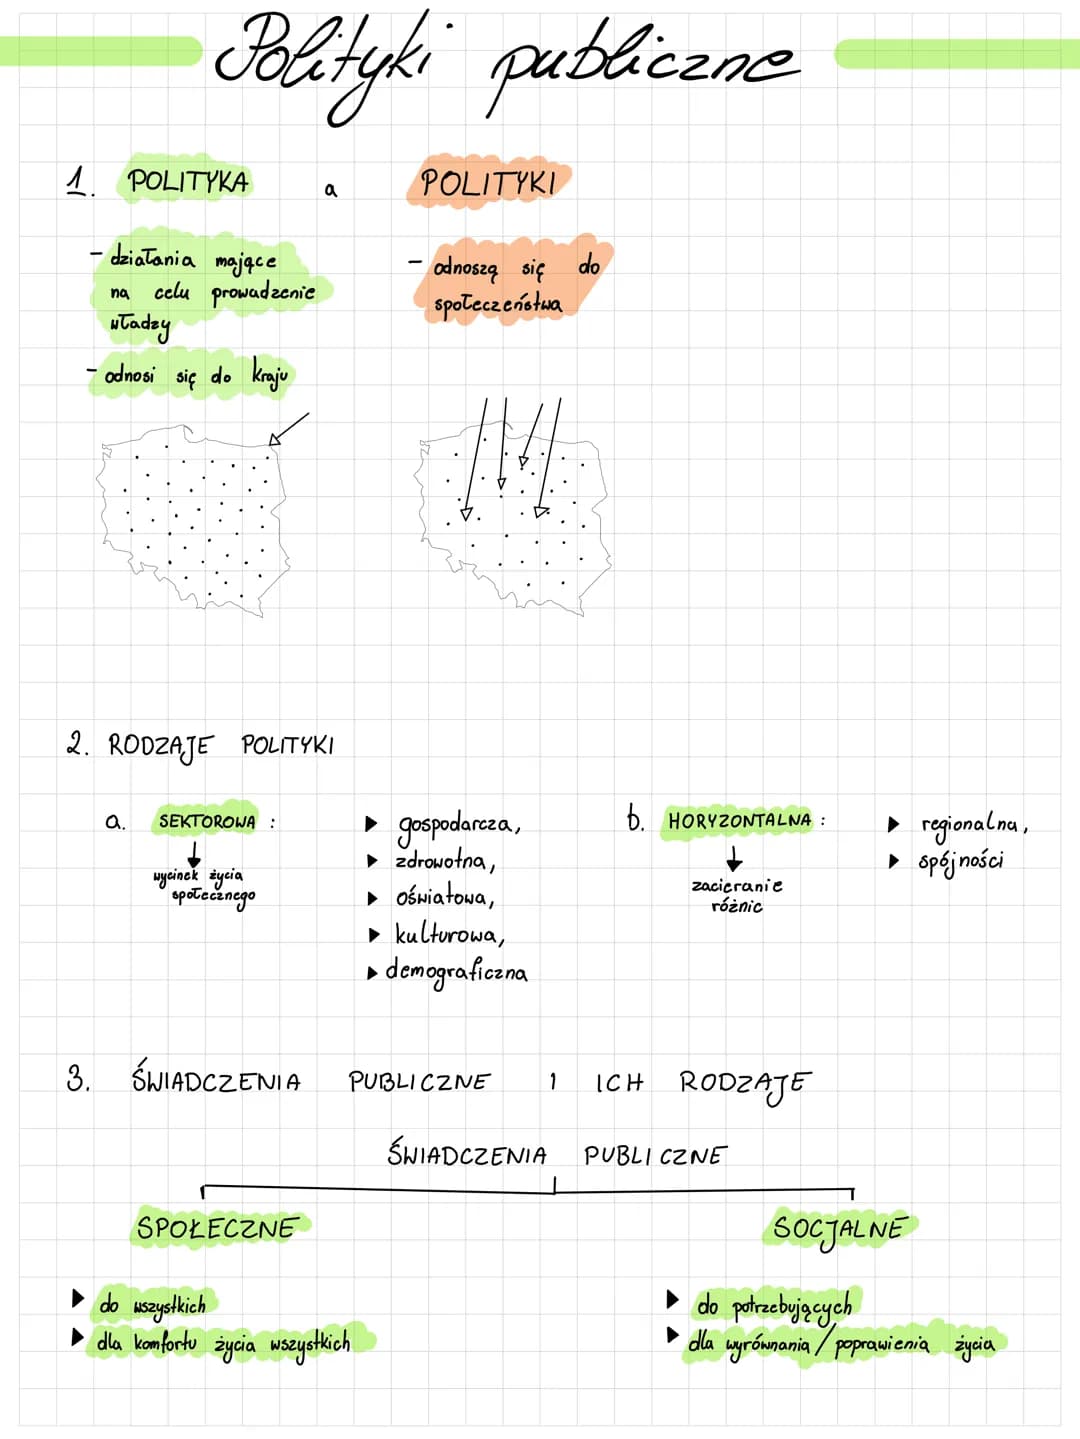 Polityki publiczne
1. POLITYKA a POLITYKI
- działania mające
na celu prowadzenie
władzy
- odnosi się do kraju
- odnoszą się do
społeczeństwa
2. RODZAJE POLITYKI
a. SEKTOROWA :
wycinek życia
społecznego
▶ gospodarcza,
▶ zdrowotna,
▶ oświatowa,
▶ kulturowa,
▶ demograficzna
b. HORYZONTALNA :
zacieranie
różnic
▶ regionalna,
▶ spójności
3. ŚWIADCZENIA PUBLICZNE I ICH RODZAJE
ŚWIADCZENIA PUBLICZNE
SPOŁECZNE
▶ do wszystkich
▶ dla komfortu życia wszystkich
SOCJALNE
▶ do potrzebujących
▶ dla wyrównania / poprawienia życia